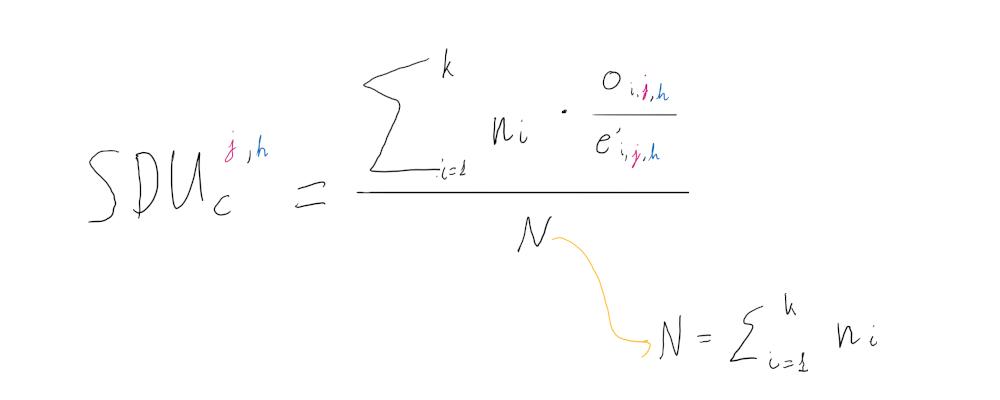 SDU_c^{j,h} = \frac{\sum_{i=1}^{k} n_i \cdot \frac{o_{i,j,h}}{e'_{i,j,h}}}{N}
N = \sum_{i=1}^{k} n_i